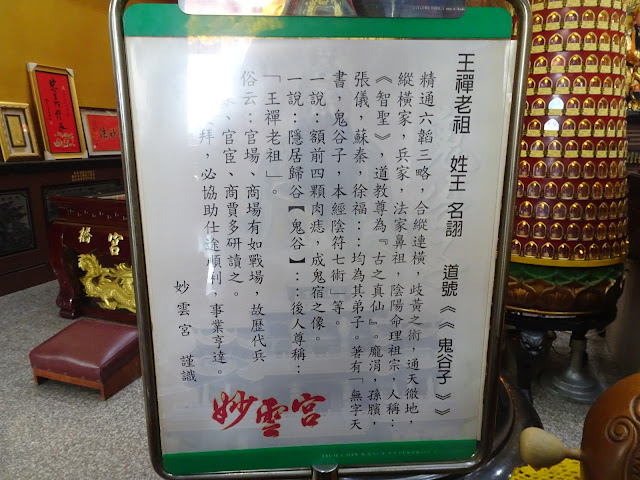 王禪老祖 姓王 名詡 道號《《鬼谷子》》
精通六韜三略，合縱連橫，歧黃之術，通天徹地，
縱橫家，兵家，法家鼻祖，陰陽命理祖宗，人稱：
《智聖》，道教尊為『古之真仙』。龐涓，孫臏，
張儀，蘇秦，徐福：：均為其弟子。著有「無字天
書，鬼谷子，本經陰符七術」等。
一說：額前四顆肉痣，成鬼宿之像。
一說：隱居歸谷【鬼谷】：：後人尊稱：
「王禪老祖」。
俗云：官場、商場有如戰場，故歷代兵
、官宦、商賈多研讀之。
拜，必協助仕途順利，事業亨達。
妙雲宮 謹識
妙雲宮
宮